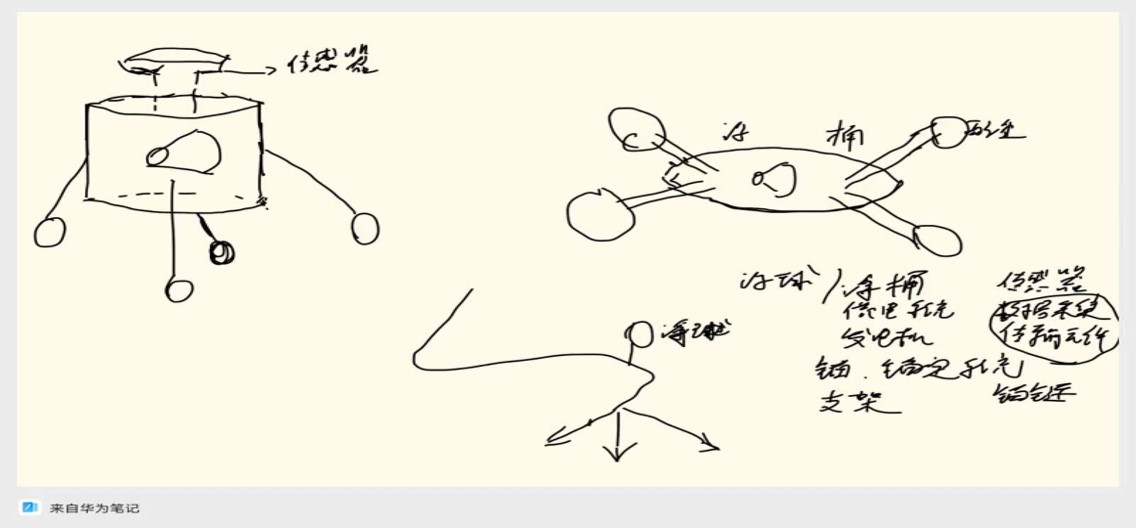 传感器
浮 桶
浮球
浮球/浮桶
供电系统
发电机
锚.锚定系统
支架
传感器
数据系统
传输元件
锚链
来自华为笔记